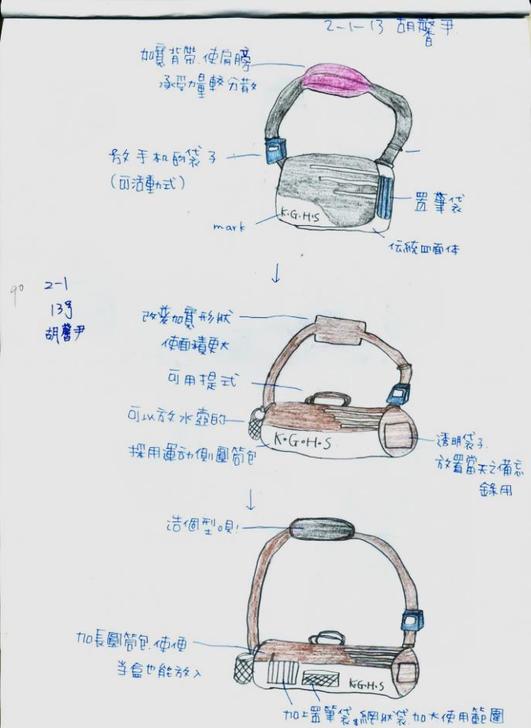 2-1-13 胡馨尹
加寬背帶.使肩膀
承受力量較分散
放手机的袋子
(可活動式)
置筆袋
K.G.H.S
mark
伝統四面体
90
2-1
13号
胡馨尹
改変加寬形狀
使面積更大
可用提式
可以放水壺的
K.G.H.S
採用運动側圓筒包
透明袋子.
放置當天之備忘
錄用
造個型唄!
加長圓筒包.使便
當盒也能放入
K.G.H.S
加上置筆袋&網狀袋.加大使用範圍